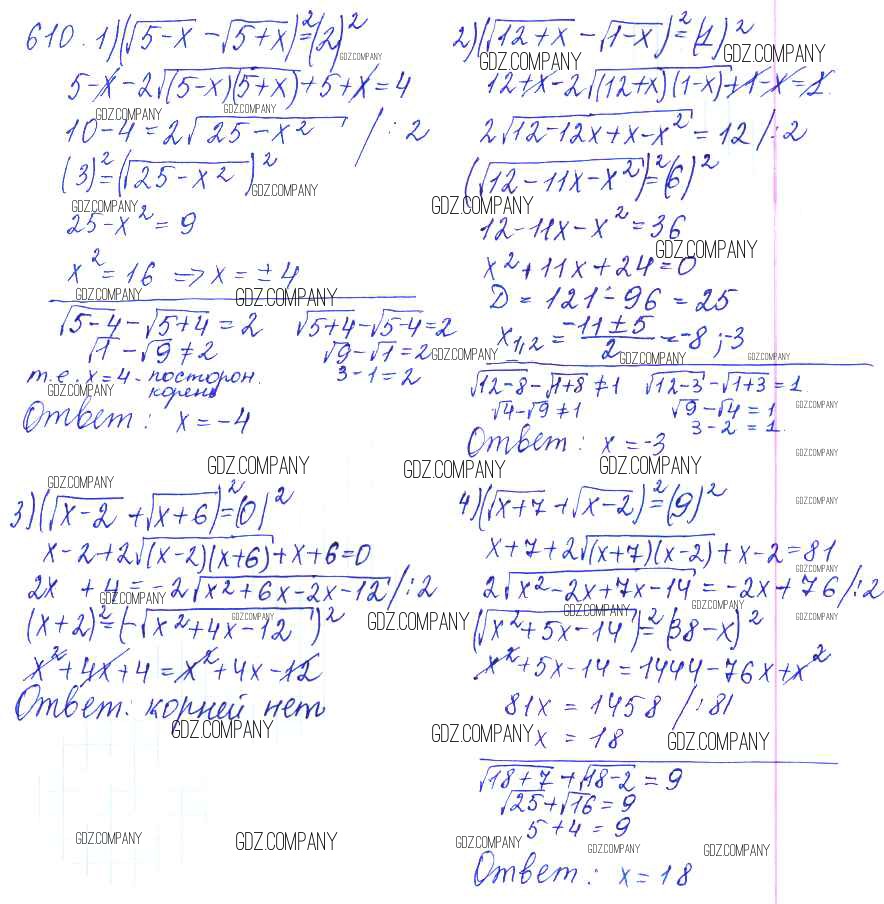 610. 1) (√(5-x) - √(5+x))² = (2)²
5-x-2√((5-x)(5+x))+5+x=4
10-4=2√(25-x²) /:2
(3)²=(√(25-x²))²
25-x²=9
x²=16 => x=±4
√(5-4)-√(5+4)=2 √(5+4)-√(5-4)=2
√1-√9≠2 √9-√1=2
т.е. x=4 - посторон. 3-1=2
корень
Ответ: x=-4
2) (√(12+x) - √(1-x))² = (1)²
12+x-2√((12+x)(1-x))+1-x=1.
2√(12-12x+x-x²)=12 /:2
(√(12-11x-x²))²=(6)²
12-11x-x²=36
x²+11x+24=0
D=121-96=25
x₁,₂=(-11±5)/2=-8;-3
√(12-8)-√(1+8)≠1 √(12-3)-√(1+3)=1.
√4-√9≠1 √9-√4=1
3-2=1.
Ответ: x=-3
3) (√(x-2)+√(x+6))²=(0)²
x-2+2√((x-2)(x+6))+x+6=0
2x+4=-2√(x²+6x-2x-12) /:2
(x+2)²=(-√(x²+4x-12))²
x²+4x+4=x²+4x-12
Ответ: корней нет
4) (√(x+7)+√(x-2))²=(9)²
x+7+2√((x+7)(x-2))+x-2=81
2√(x²-2x+7x-14)=-2x+76 /:2
(√(x²+5x-14))²=(38-x)²
x²+5x-14=1444-76x+x²
81x=1458 /:81
x=18
√(18+7)+√(18-2)=9
√25+√16=9
5+4=9
Ответ: x=18
GDZ.COMPANY